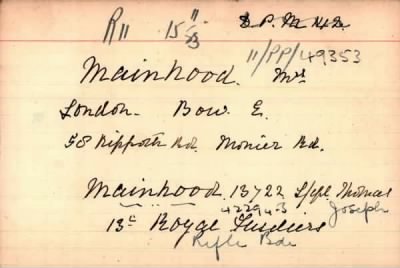 R11 15/11/23
11/PP/49353
Mainhood. Mrs
London. Bow. E.
58 Ripporth Rd. Monier Rd.
Mainhood. 13722 L/cpl Thomas
42294-3 Joseph
13th Royal Fusiliers
Rifle Bde